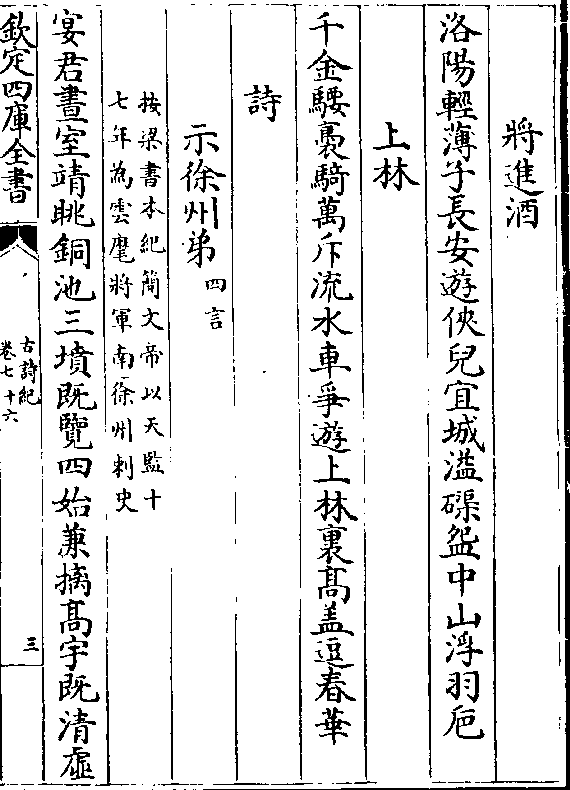 將進酒
洛陽輕薄子長安遊俠兒宜城溢磲盌中山浮羽巵
上林
千金騕褭騎萬斤流水車爭遊上林裏髙盖逗春華
詩
示徐州弟四言
按梁書本紀簡文帝以天監十
七年為雲麾將軍南徐州刺史
宴君畫室靖眺銅池三墳既覽四始兼摛髙宇既清虛
欽定四庫全書
古詩紀
卷七十六
三